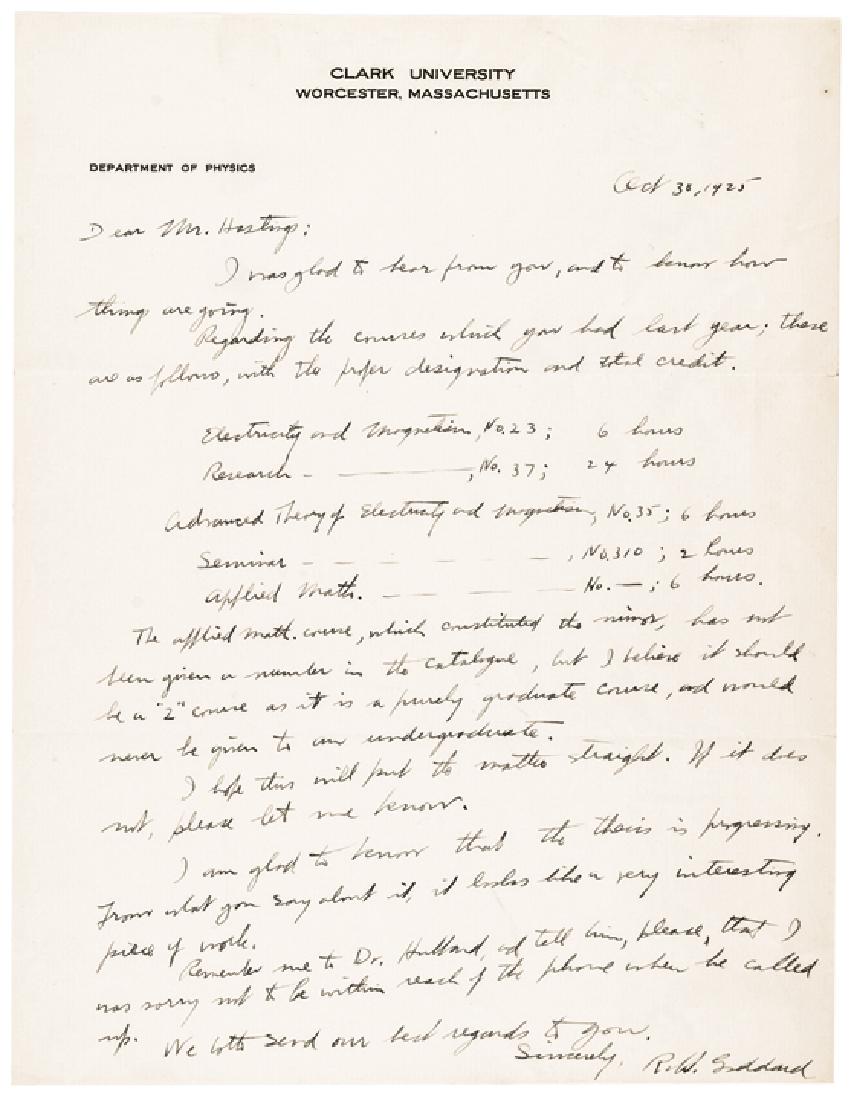 CLARK UNIVERSITY
WORCESTER, MASSACHUSETTS
DEPARTMENT OF PHYSICS
Oct 30, 1925
Dear Mr. Hastings:
I was glad to hear from you, and to know how
things are going.
Regarding the courses which you had last year; these
are as follows, with the proper designation and total credit.
Electricity and Magnetism, No. 23; 6 hours
Research - ———, No. 37; 24 hours
Advanced Theory of Electricity and Magnetism, No. 35; 6 hours
Seminar - - - - - -, No. 310; 2 hours
Applied Math. — — — — No. —; 6 hours.
The applied math. course, which constituted the minor, has not
been given a number in the catalogue, but I believe it should
be a "2" course as it is a purely graduate course, and would
never be given to an undergraduate.
I hope this will put the matter straight. If it does
not, please let me know.
I am glad to know that the thesis is progressing.
From what you say about it, it looks like a very interesting
piece of work.
Remember me to Dr. Hubbard, and tell him, please, that I
was sorry not to be within reach of the phone when he called
up.
We both send our best regards to you.
Sincerely,
R.H. Goddard